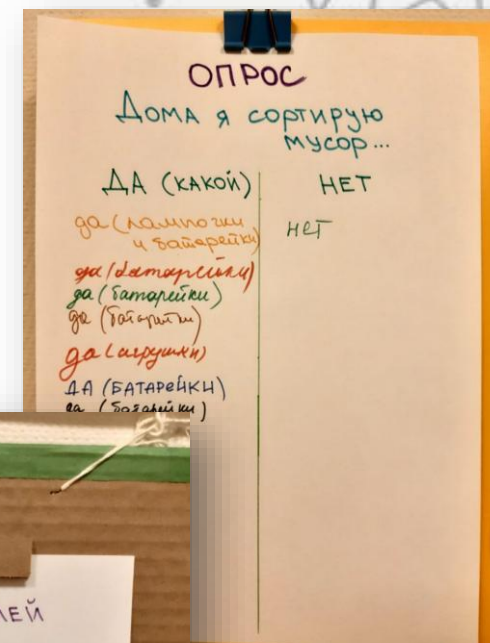 ОПРОС
Дома я сортирую
мусор...
ДА (какой)
НЕТ
да (лампочки
и батарейки)
нет
да (батарейки)
да (батарейки)
да (батарейки)
да (игрушки)
ДА (БАТАРЕЙКИ)
да (батарейки)
ЛЕЙ